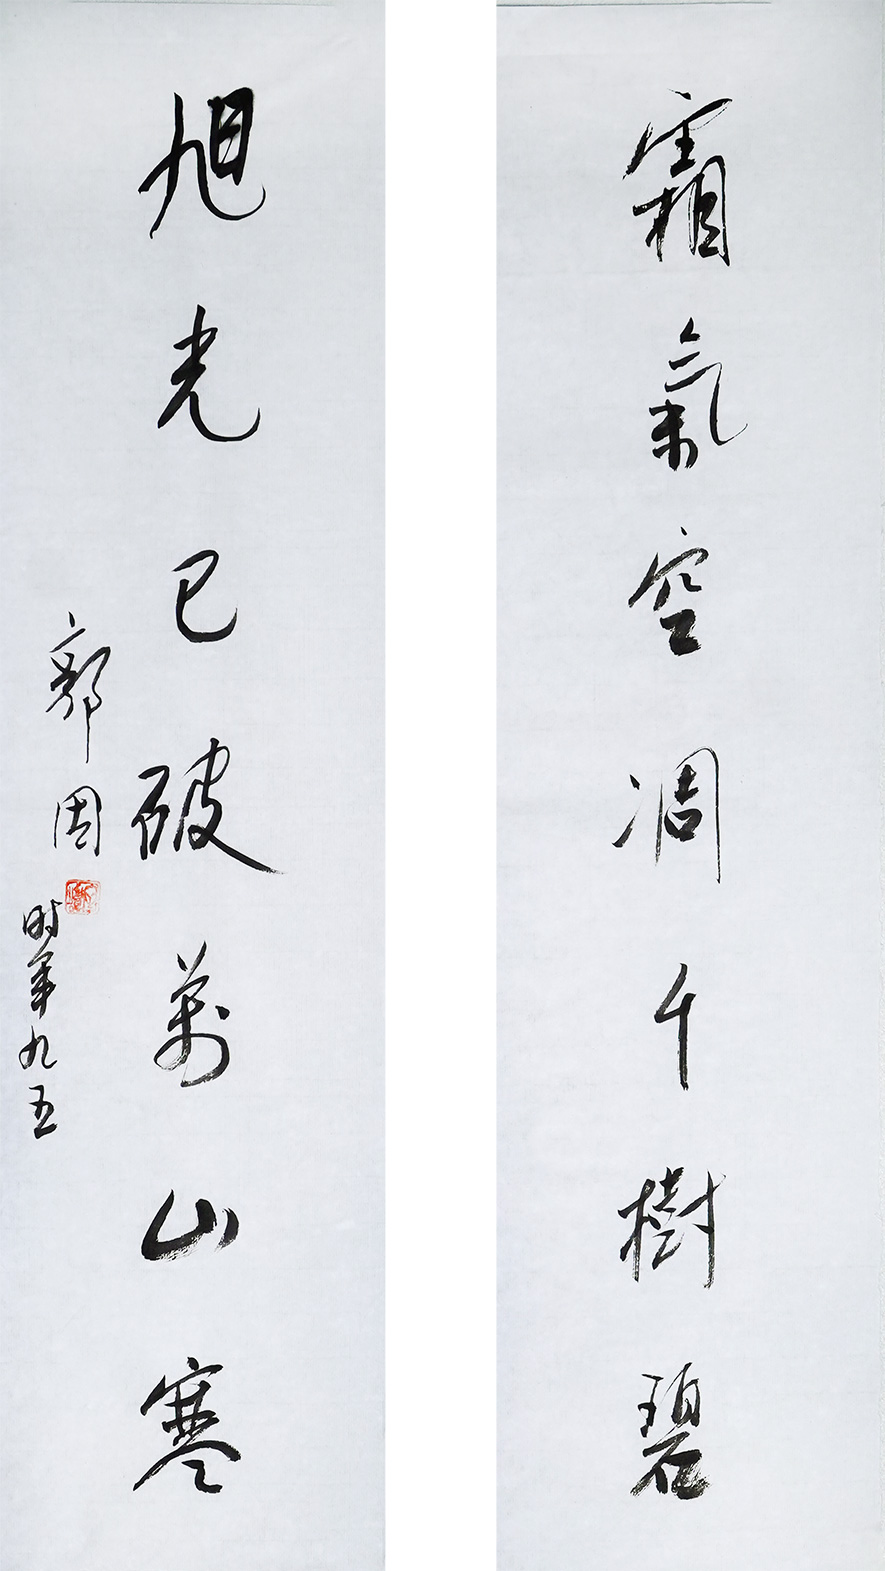 霜氣空凋千樹碧
旭光已破萬山寒
郭因
时年九五